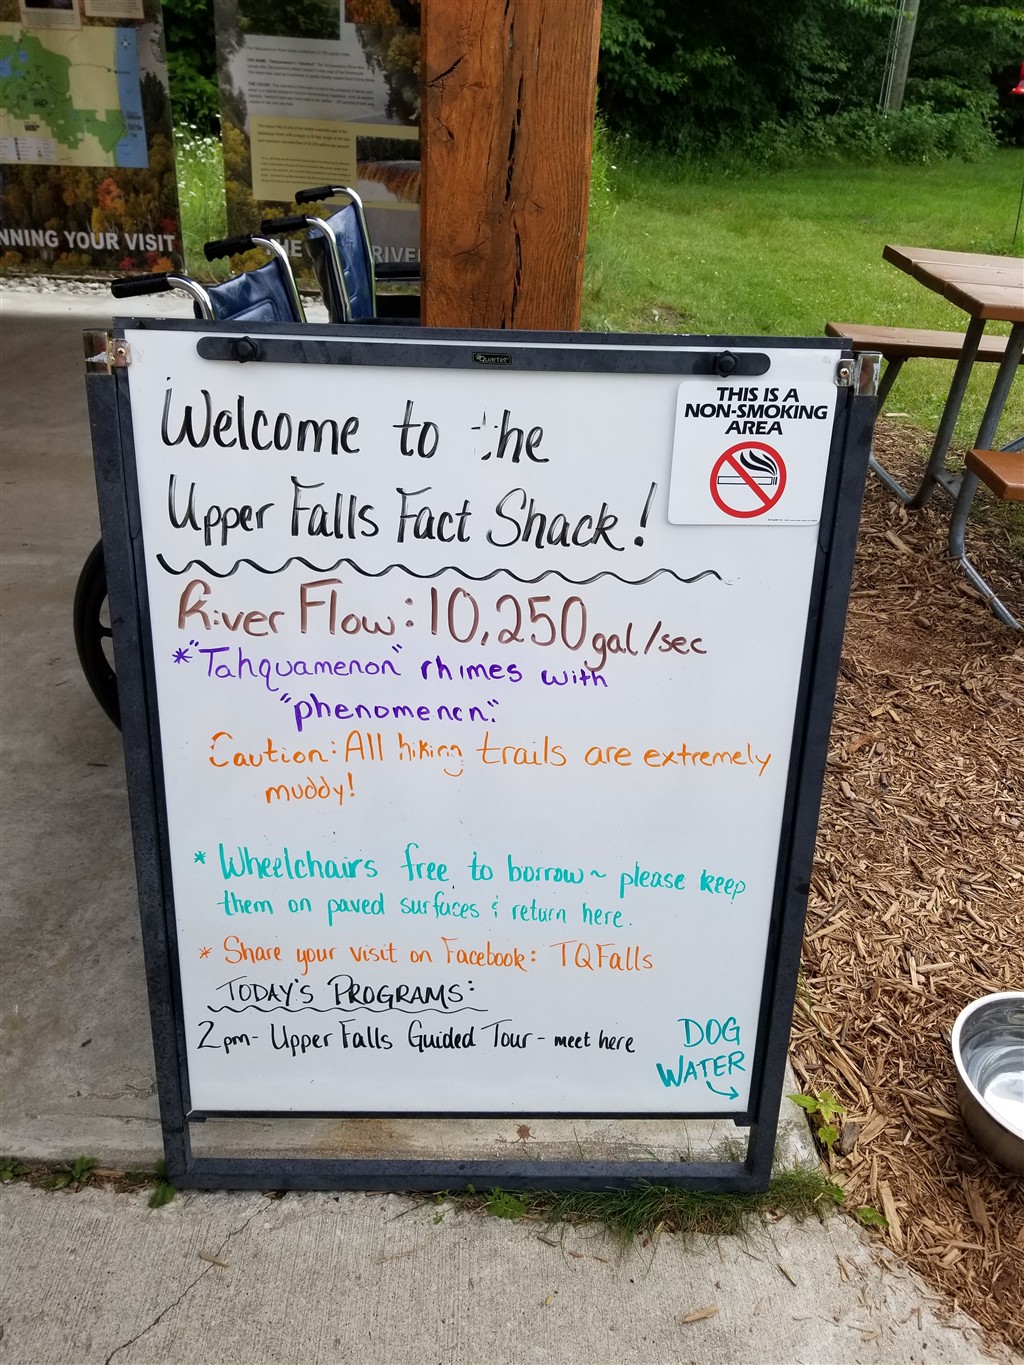 NNING YOUR VISIT
THE
RIVER
Quartet
THIS IS A
NON-SMOKING
AREA
Welcome to the
Upper Falls Fact Shack!
River Flow: 10,250 gal/sec
*"Tahquamenon" rhimes with
"phenomenon."
Caution: All hiking trails are extremely
muddy!
* Wheelchairs free to borrow ~ please keep
them on paved surfaces & return here.
* Share your visit on Facebook: TQFalls
TODAY'S PROGRAMS:
2pm - Upper Falls Guided Tour - meet here
DOG
WATER